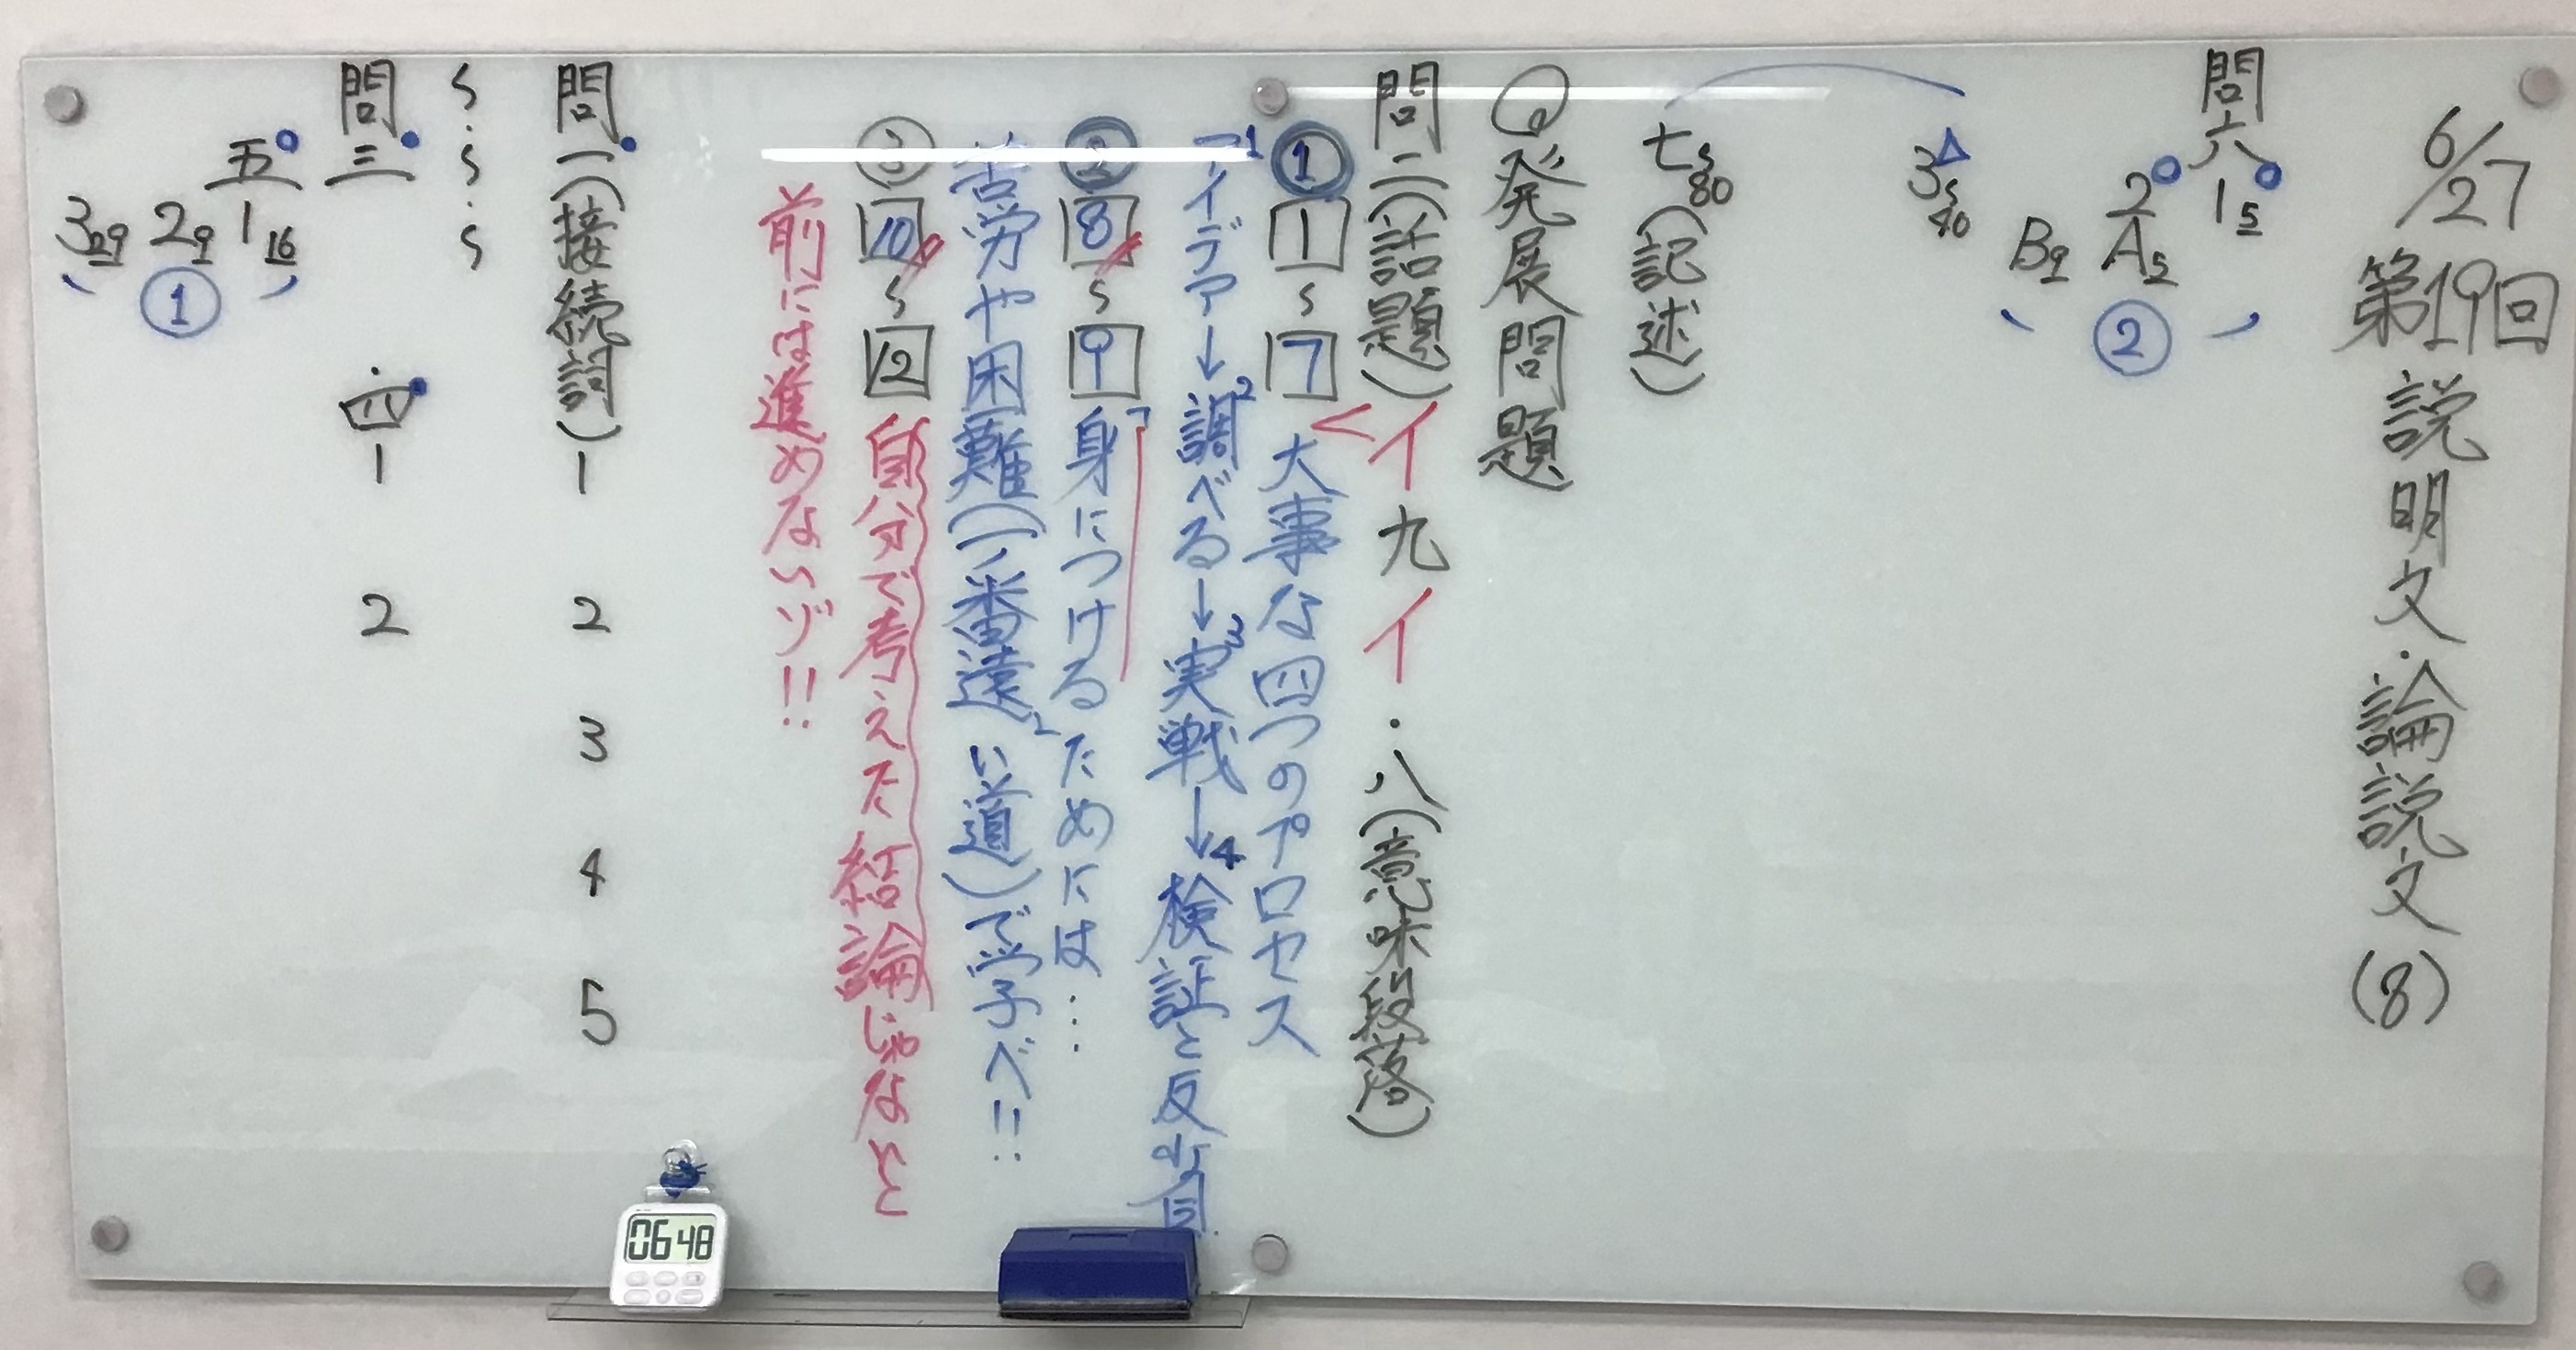 6/27 第19回 説明文・論説文(8)
問六 1 5
2 A 5
B 9
②
3 S 40
七 S 80 (記述)
◎発展問題
問二(話題)イ 九 イ・八(意味段落)
① 1 〜 7 大事な四つのプロセス
1アイデア→2調べる→3実戦→4検証と反省
② 8 〜 9 身につけるためには…
苦労や困難(一番遠い道)で学べ!!
③ 10 〜 12 自分で考えた結論じゃないと
前には進めないゾ!!
問一(接続詞) 1 2 3 4 5
問三・四 1 2
五 1 16
2 9
3 29
①
06 48